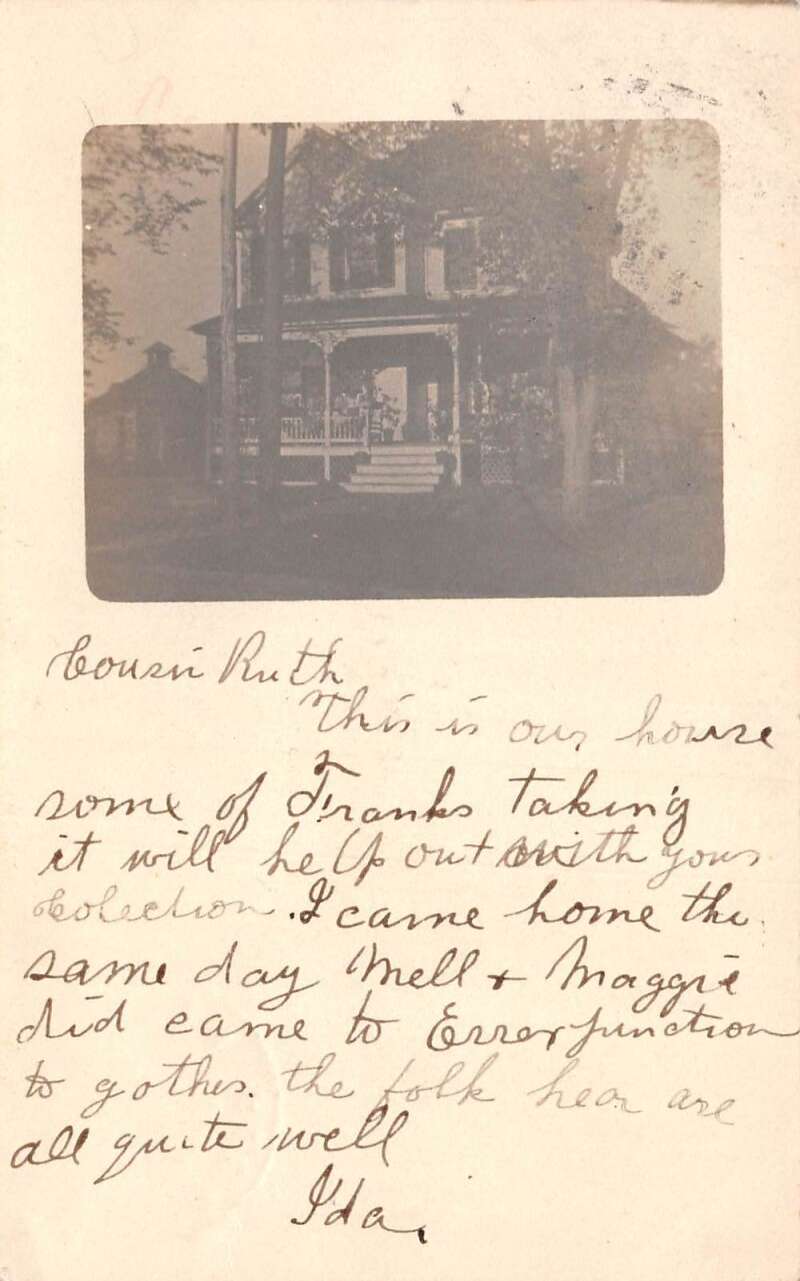 Cousin Ruth
This is our house
some of Franks taking
it will help out with your
Colection. I came home the
same day Mell + Maggie
did came to Essex junction
to gother. the folk hear are
all quite well
Ida.